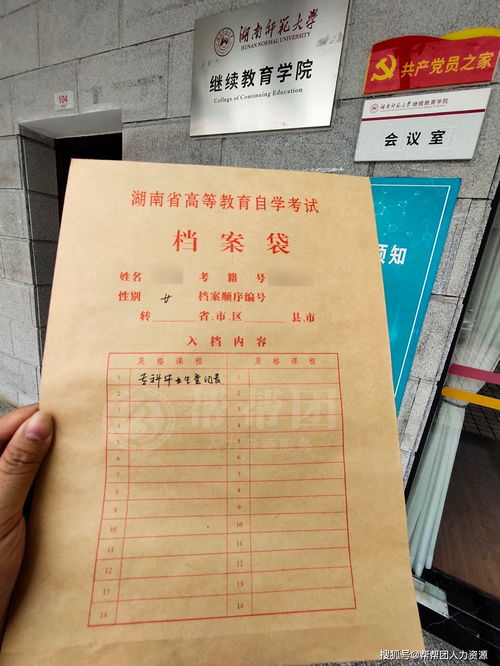 湖南师范大学
HUNAN NORMAL UNIVERSITY
继续教育学院
College of Continuing Education
共产党员之家
湖南师范大学继续教育学院
会议室
104
须知
湖南省高等教育自学考试
档案袋
姓名 考籍号
性别 女 档案顺序编号
转 省.市.区 县.市
入档内容
及格课程 及格课程
1 专科毕业生登记表 1
2 2
3 3
4 4
5 5
6 6
7 7
8 8
9 9
10 10
11 11
12 12
13 13
14 14
帮帮团
人力资源服务
搜狐号@帮帮团人力资源